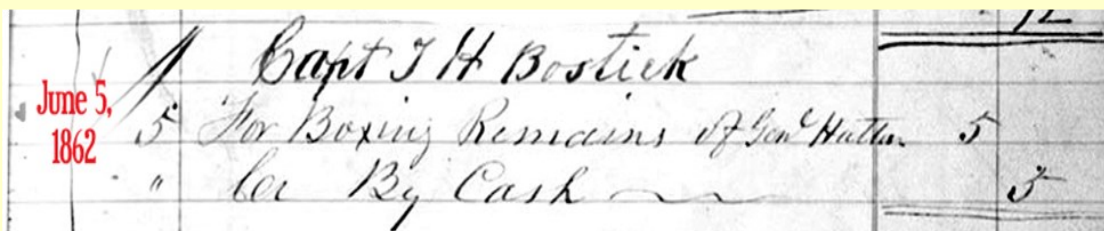 12
Capt T H Bostick
June 5,
1862
5 For Boxing Remains of Genl Hatton 5
" Cr By Cash 5